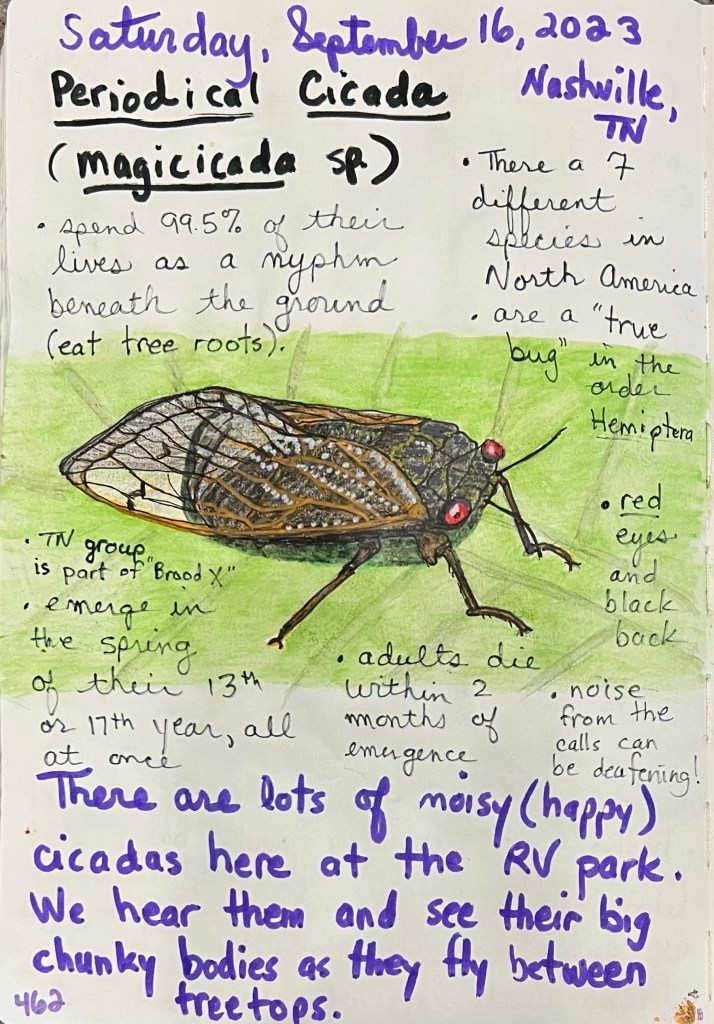 Saturday, September 16, 2023
Nashville,
TN
Periodical Cicada
(magicicada sp.)
• spend 99.5% of their
lives as a nyphm
beneath the ground
(eat tree roots).
• There a 7
different
species in
North America
• are a "true
bug" in the
order
Hemiptera
• red
eyes
and
black
back
• TN group
is part of "Brood X"
• emerge in
the spring
of their 13th
or 17th year, all
at once
• adults die
within 2
months of
emergence
• noise
from the
calls can
be deafening!
There are lots of noisy (happy)
cicadas here at the RV park.
We hear them and see their big
chunky bodies as they fly between
treetops.
462